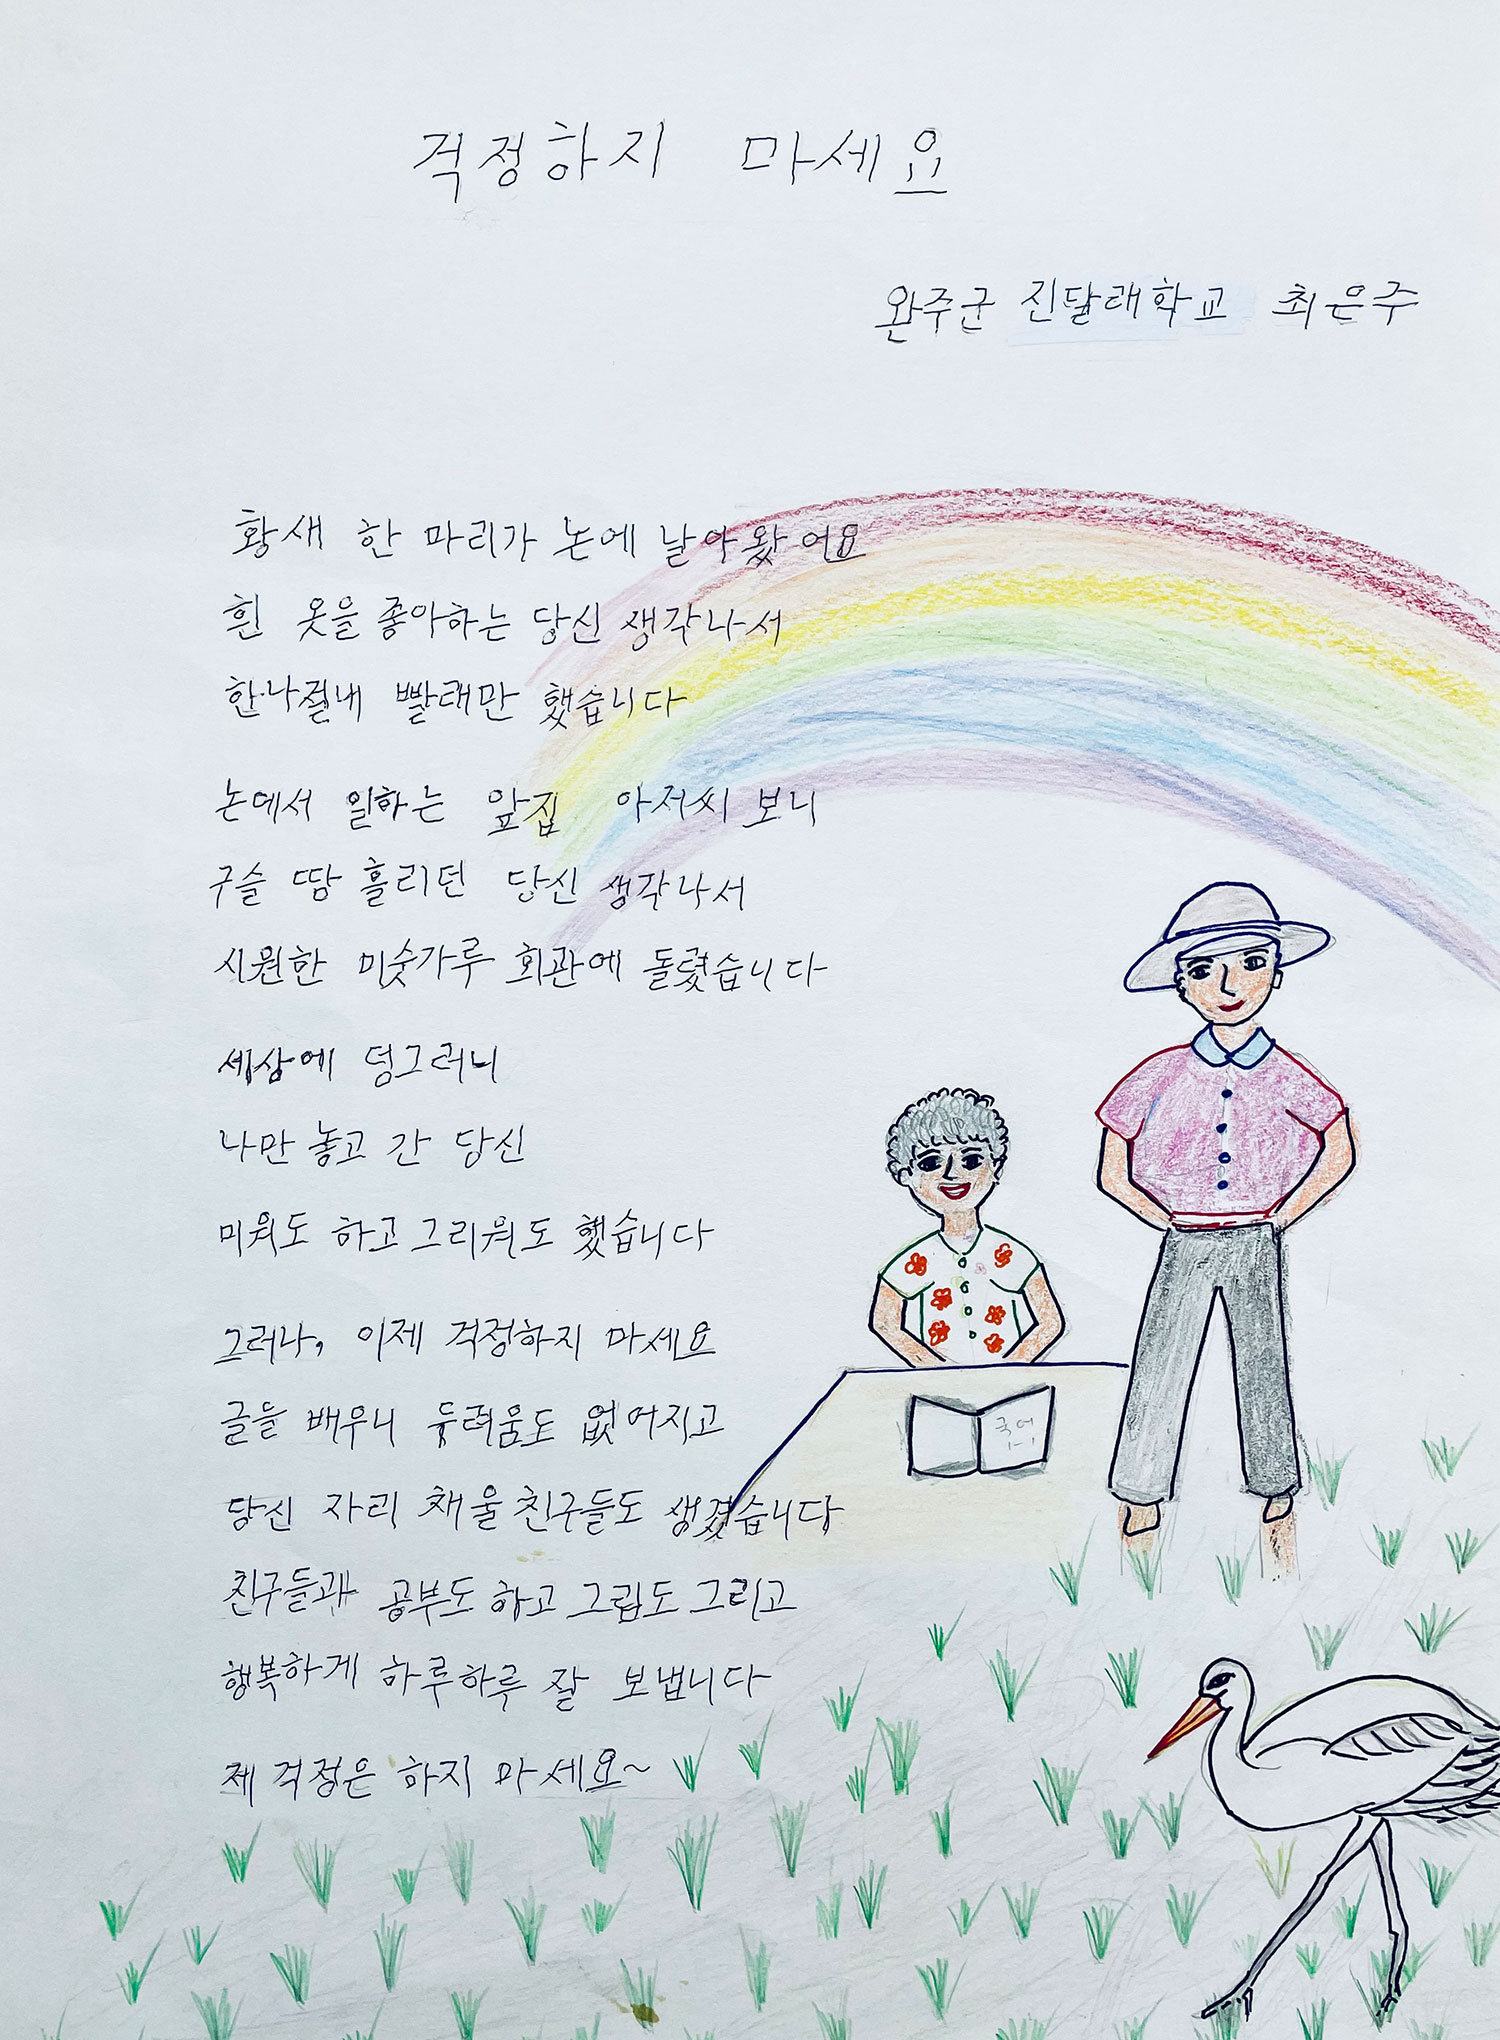 걱정하지 마세요
완주군 진달래학교 최은주
황새 한 마리가 논에 날아왔어요
흰 옷을 좋아하는 당신 생각나서
한나절내 빨래만 했습니다
논에서 일하는 앞집 아저씨 보니
구슬 땀 흘리던 당신 생각나서
시원한 미숫가루 회관에 돌렸습니다
세상에 덩그러니
나만 놓고 간 당신
미워도 하고 그리워도 했습니다
그러나, 이제 걱정하지 마세요
글을 배우니 두려움도 없어지고
당신 자리 채울 친구들도 생겼습니다
친구들과 공부도 하고 그림도 그리고
행복하게 하루하루 잘 보냅니다
제 걱정은 하지 마세요~
국어
1-1